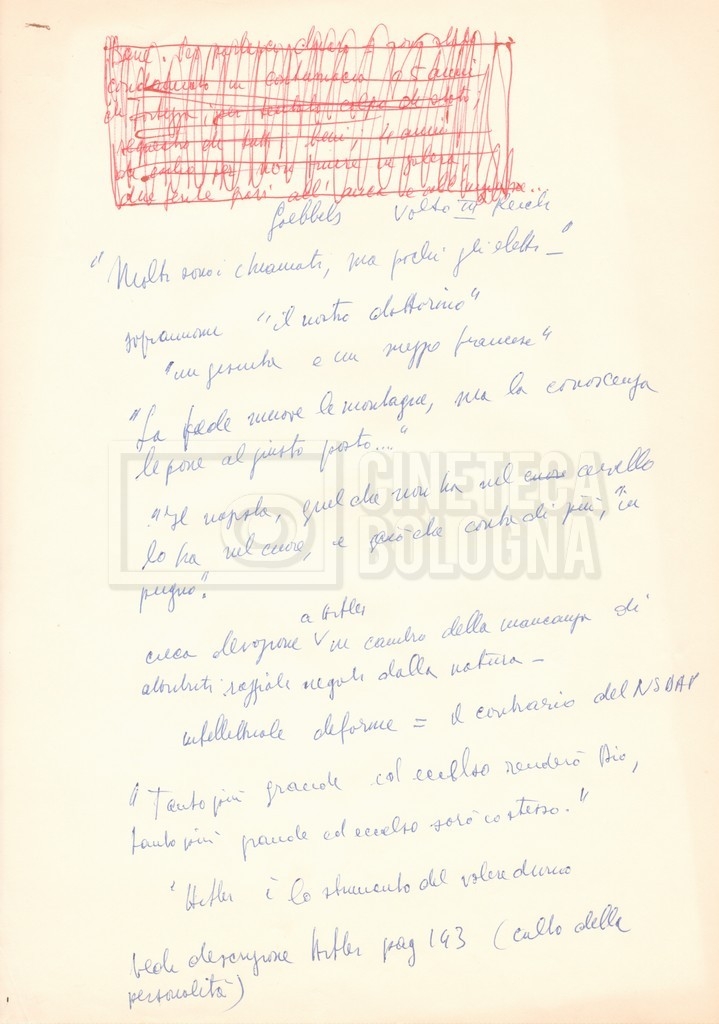 condannato in contumacia a 5 anni
di fortezza, per tentato colpo di stato,
sequestro di tutti i beni, 4 anni
Goebbels Volto III Reich
"Molti sono i chiamati, ma pochi gli eletti –"
soprannome "il nostro dottorino"
"un gesuita e un mezzo francese"
"La fede muove le montagne, ma la conoscenza
le pone al giusto posto..."
"Il nazista, quel che non ha nel cuore cervello
lo ha nel cuore, e ciò che conta di più, "in
pugno".
a Hitler
cieca devozione V in cambio della mancanza di
attributi razziali negati dalla natura –
intellettuale deforme = il contrario del NSDAP
"Tanto più grande ed eccelso renderò Dio,
tanto più grande ed eccelso sarò io stesso."
"Hitler è lo strumento del volere divino
vedi descrizione Hitler pag 143 (culto della
personalità)
CINETECA
BOLOGNA